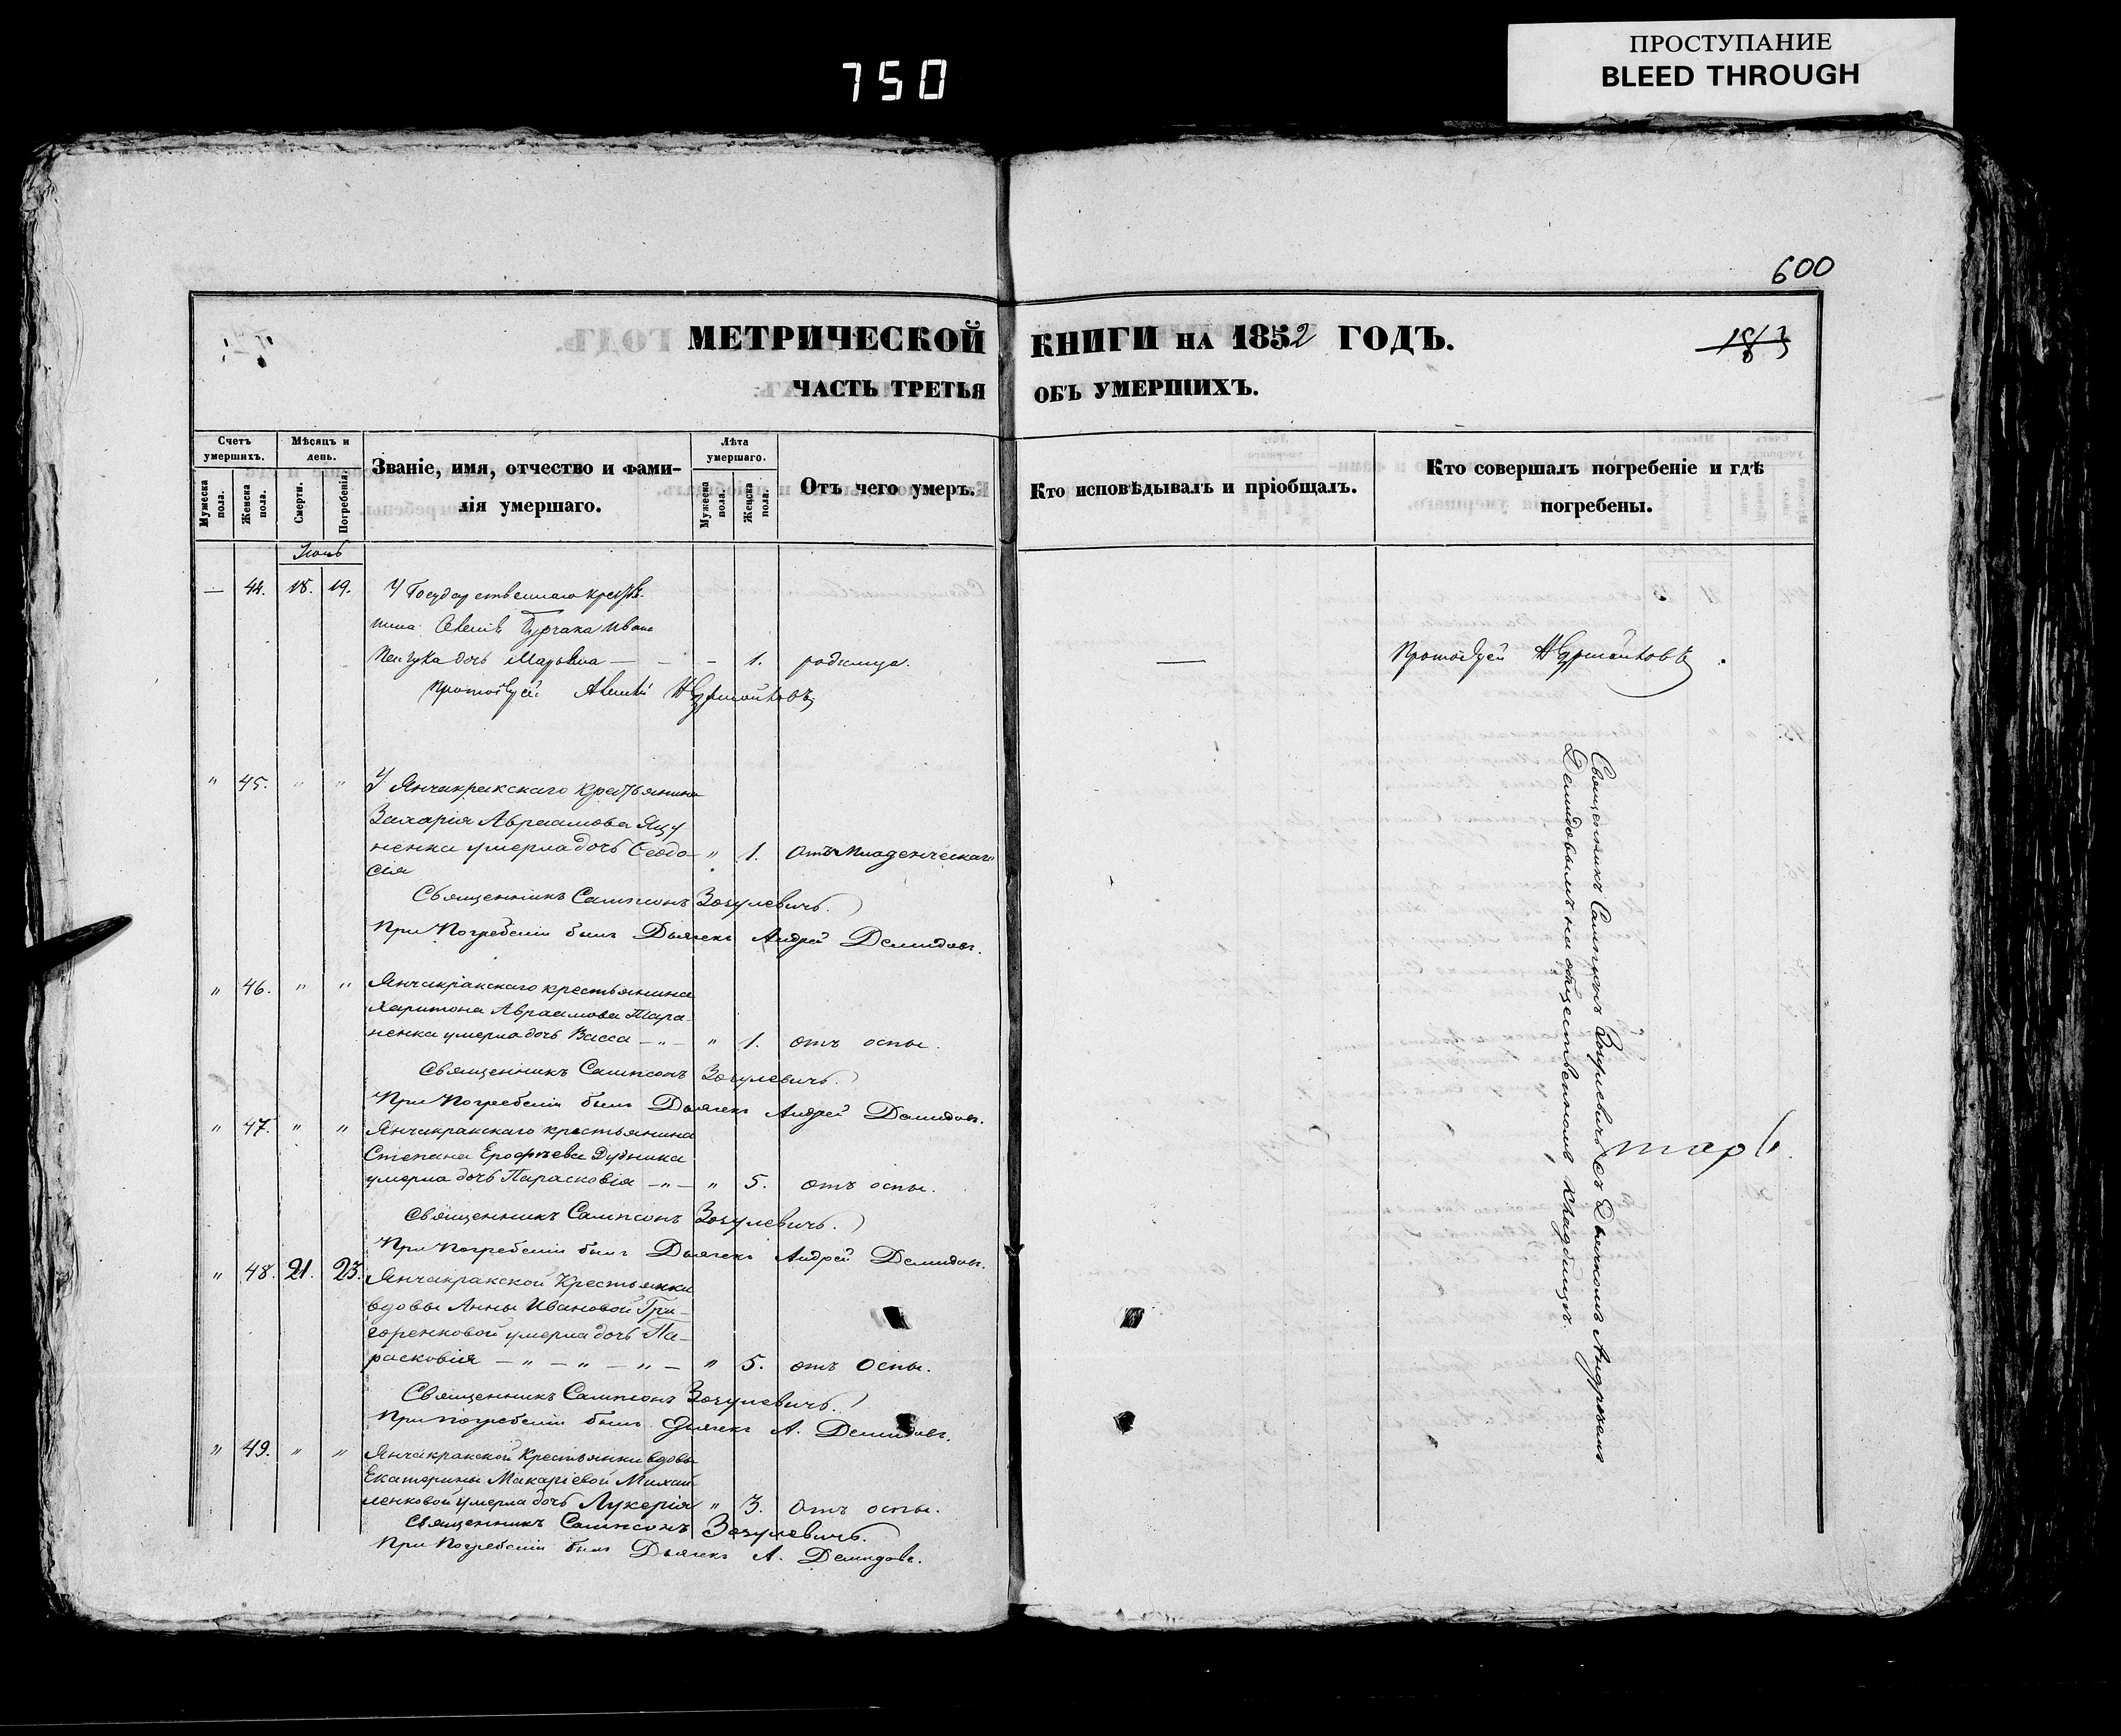 750
ПРОСТУПАНИЕ
BLEED THROUGH
600
МЕТРИЧЕСКОЙ КНИГИ НА 1852 ГОДЪ.
ЧАСТЬ ТРЕТЬЯ ОБЪ УМЕРШИХЪ.
Счетъ умершихъ.
Мужеска пола.
Женска пола.
Мѣсяцъ и день.
Смерти.
Погребенія.
Званіе, имя, отчество и фами-
лія умершаго.
Лѣта умершаго.
Мужеска пола.
Женска пола.
Отъ чего умеръ.
Кто исповѣдывалъ и пріобщалъ.
Кто совершалъ погребеніе и гдѣ
погребены.
— 44. 18. 19. У Государственнаго
Ивана
дочь Марьяна — - - 1. родимца. —
Протоіерей
Протоіерей
" 45. " " У Янчакракскаго крестьянина
Захарія Авраамова Яцу
ненка умерла дочь Ѳеодо- " 1. Отъ Младенческаго
сія
Священникъ Сампсонъ Зогулевичъ.
При Погребеніи былъ Дьячекъ Андрей Демидовъ.
" 46. " " Янчакракскаго крестьянина
Харитона Авраамова Тара-
ненка умерла дочь Васса — " — " 1. отъ оспы.
Священникъ Сампсонъ Зогулевичъ.
При Погребеніи былъ Дьячекъ Андрей Демидовъ.
" 47. " " Янчакракскаго крестьянина
Степана Ерофѣева Дудника
умерла дочь Парасковія — " — " 5. отъ оспы.
Священникъ Сампсонъ Зогулевичъ.
При Погребеніи былъ Дьячекъ Андрей Демидовъ.
" 48. 21. 23. Янчакракской Крестьянки
вдовы Анны Ивановой Гри-
горенковой умерла дочь Па-
расковія — " — " — " — " 5. отъ Оспы.
Священникъ Сампсонъ Зогулевичъ.
При погребеніи былъ Дьячекъ А. Демидовъ.
" 49. " " Янчакракской Крестьянки вдовы
Екатерины Макаріевой Михай
ленковой умерла дочь Лукерія " 3. Отъ оспы.
Священникъ Сампсонъ Зогулевичъ.
При Погребеніи былъ Дьячекъ А. Демидовъ.
Священникъ Сампсонъ Зогулевичъ съ Дьячкомъ Андреемъ
Демидовымъ на общественномъ кладбищѣ.